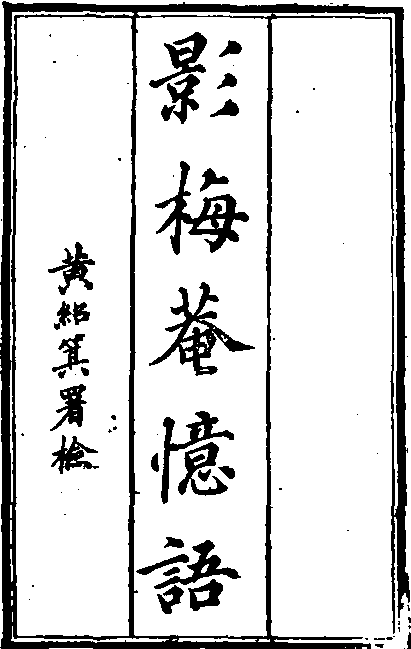 影梅菴憶語
黃紹箕署檢